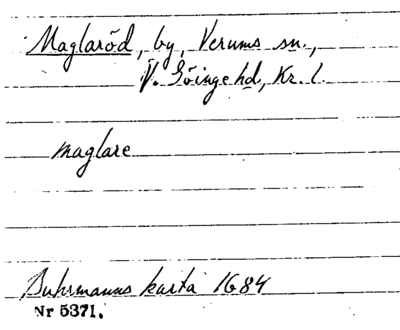 Maglaröd, by, Verums sn.,
V. Göinge hd, Kr. l.
maglare
Buhrmanns karta 1684
Nr 5371.